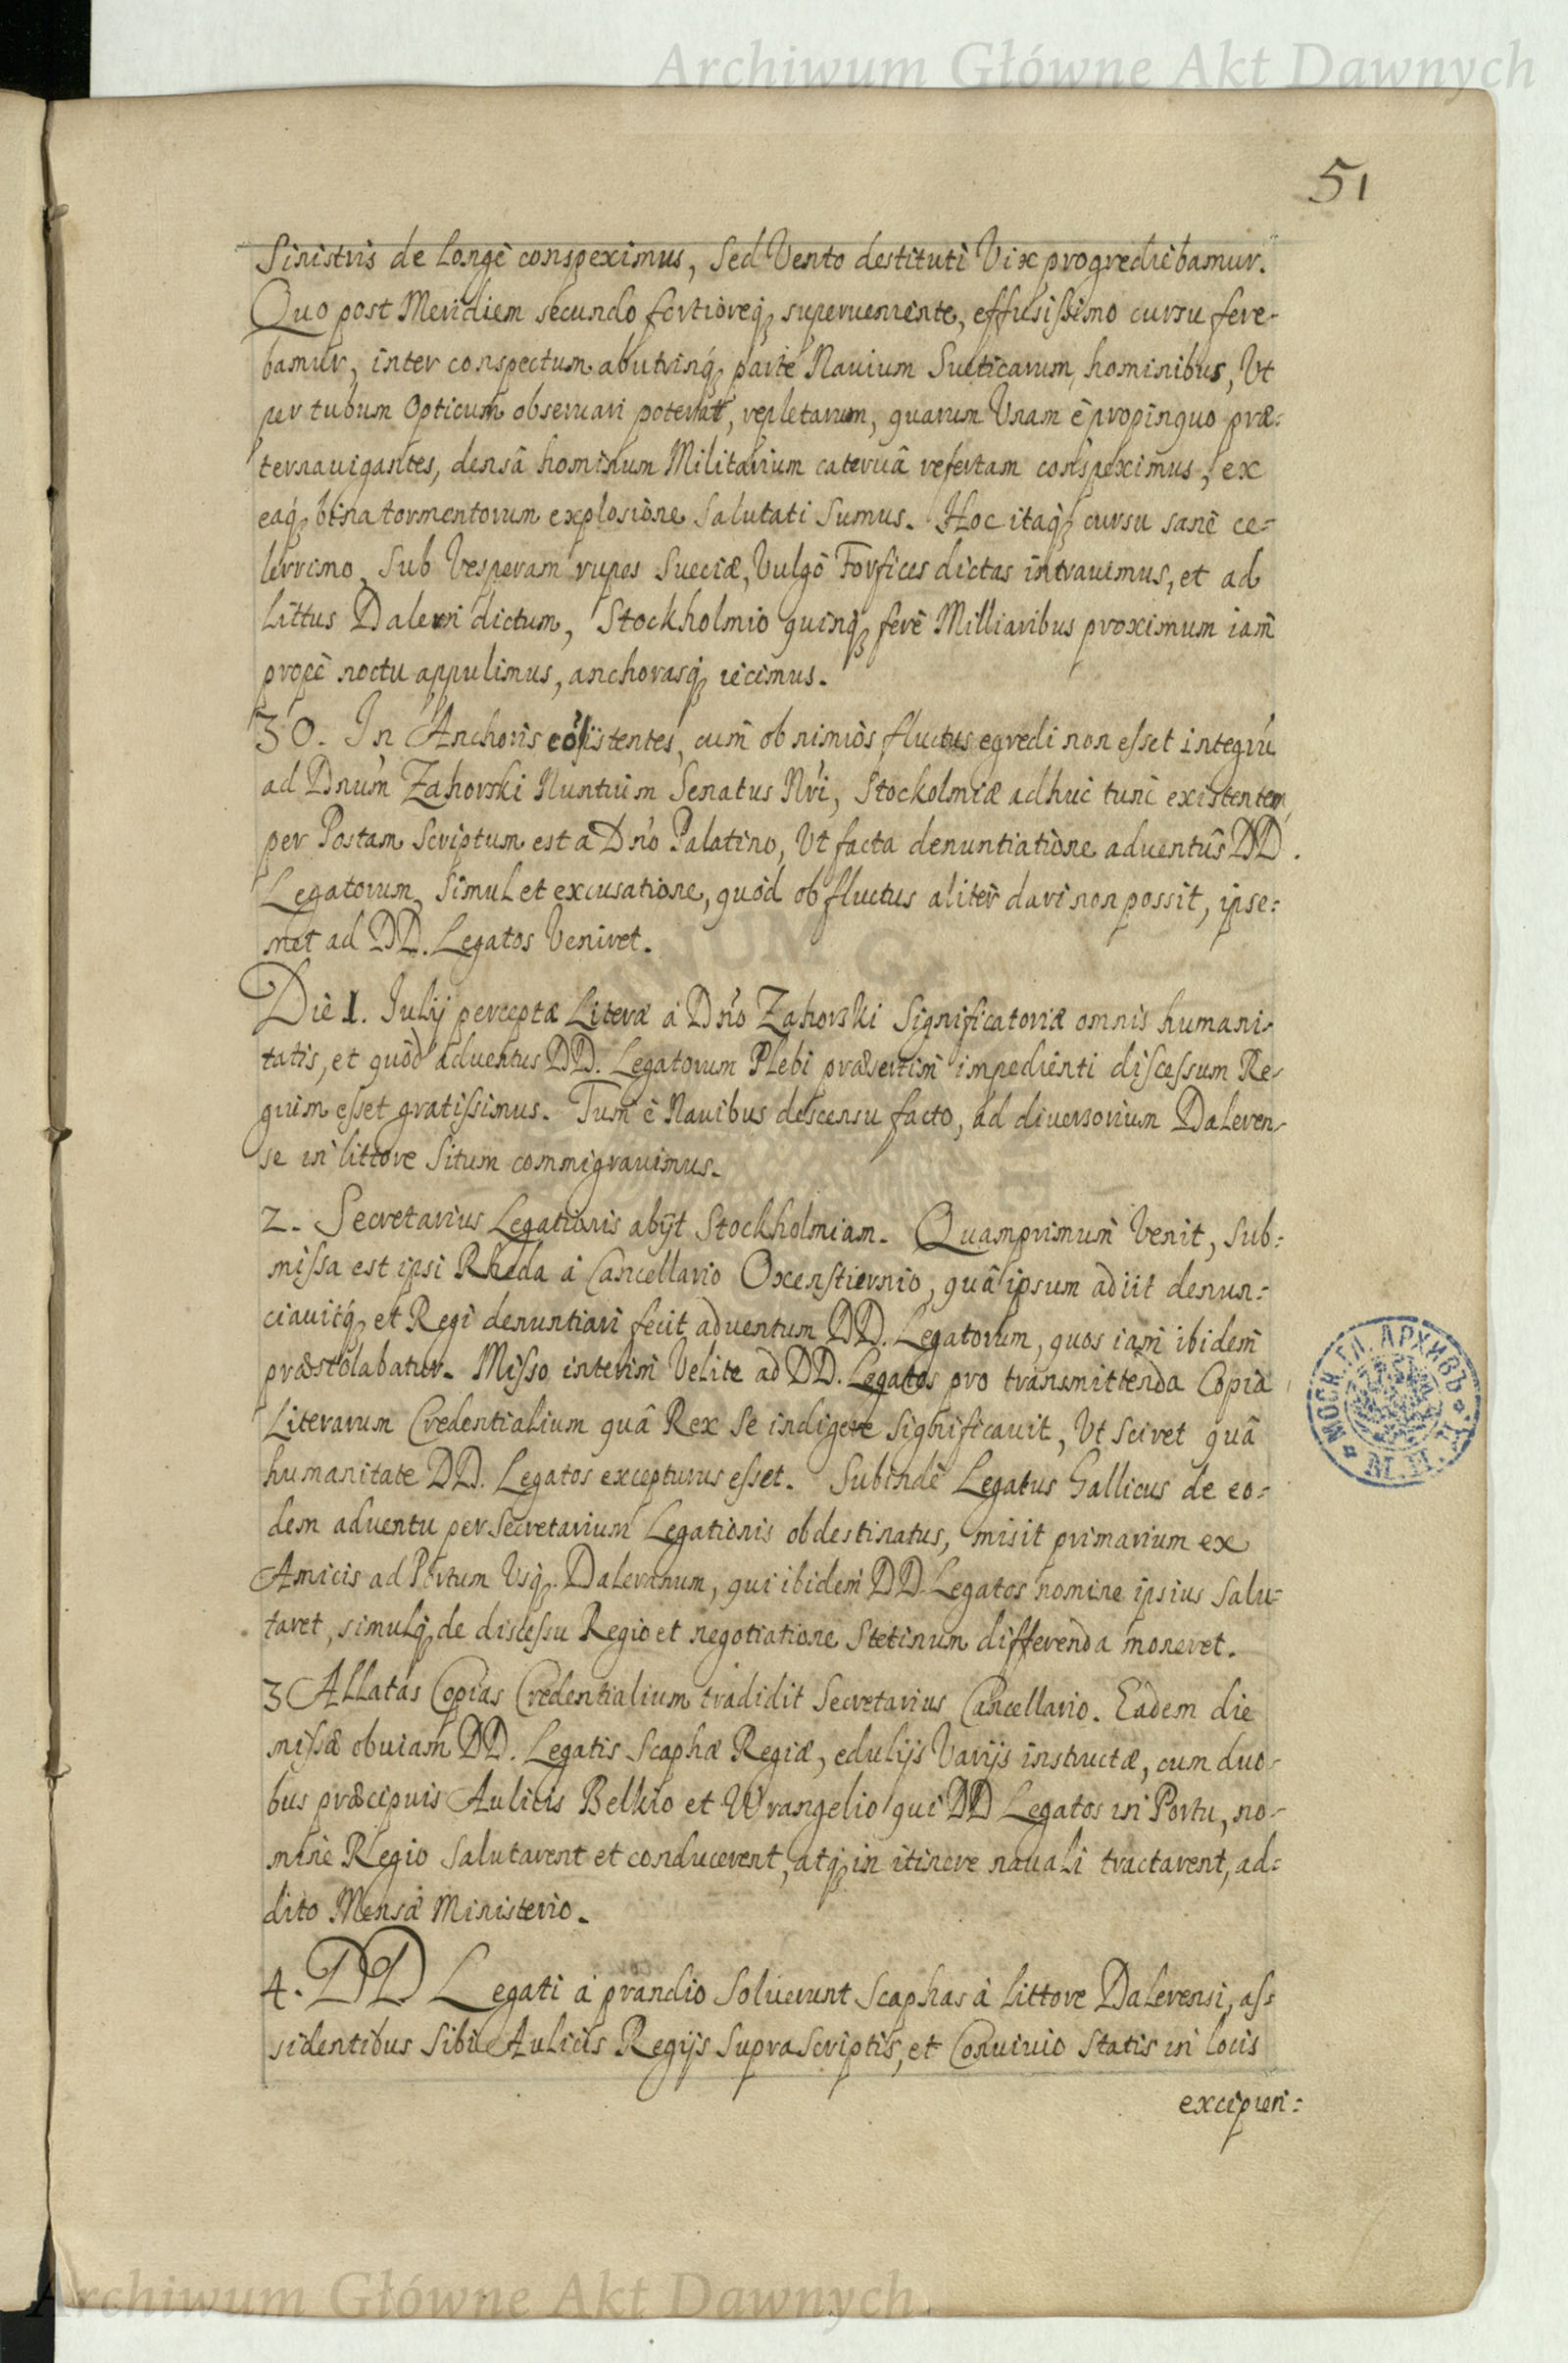 Archiwum Główne Akt Dawnych
51
Sinistris de longè conspeximus, Sed Vento destituti Vix progrediebamur.
Quo post Meridiem secundo fortioreq; superueniente, effusissimo cursu fere-
bamur, inter conspectum abutrinq; parte Nauium Sueticarum, hominibus, Vt
per tubum Opticum obseruari poterat, repletarum, quarum Vnam è propinquo præ:
ternauigantes, densâ hominum Militarium cateruâ refertam conspeximus, ex
eaq; bina tormentorum explosione Salutati Sumus. Hoc itaq; cursu sanè ce-
lerrimo, Sub Vesperam rupes Sueciæ, Vulgò Forfices dictas intrauimus, et ad
Littus Daleren dictum, Stockholmio quinq; ferè Milliaribus proximum iam
propè noctu appulimus, anchorasq; iecimus.
30. In Anchoris coñsistentes, cum ob nimios fluctus egredi non esset integrũ
ad Dnum Zahorski Nuntium Senatus Nri, Stockolmiæ adhuc tunc existentem,
per Postam Scriptum est a Dno Palatino, Vt facta denuntiatione aduentûs DD.
Legatorum, Simul et excusatione, quòd ob fluctus aliter dari non possit, ipse:
met ad DD. Legatos Veniret.
Die 1. Iulij perceptæ Literæ à Dno Zahorski Significatoriæ omnis humani-
tatis, et quòd aduentus DD. Legatorum Plebi præsertim impedienti discessum Re-
gium esset gratissimus. Tum è Nauibus descensu facto, ad diuersorium Daleren-
se in littore Situm commigrauimus.
2. Secretarius Legationis abijt Stockholmiam. Quamprimum Venit, Sub:
missa est ipsi Rheda à Cancellario Oxenstiernio, quâ ipsum adiit denun:
ciauitq; et Regi denuntiari fecit aduentum DD. Legatorum, quos iam ibidem
præstolabatur. Misso interim Velite ad DD. Legatos pro transmittenda Copia
Literarum Credentialium quâ Rex Se indigere Significauit, Vt Sciret quâ
humanitate DD. Legatos excepturus esset. Subinde Legatus Gallicus de eo:
dem aduentu per Secretarium Legationis obdestinatus, misit primarium ex
Amicis ad Portum Vsq; Daleranum, qui ibidem DD. Legatos nomine ipsius Salu:
taret, simulq; de discessu Regio et negotiatione Stetinum differenda moneret.
3 Allatas Copias Credentialium tradidit Secretarius Cancellario. Eadem die
missæ obuiam DD. Legatis Scaphæ Regiæ, edulijs Varijs instructæ, cum duo-
bus præcipuis Aulicis Belkio et Wrangelio qui DD Legatos in Portu, no-
mine Regio Salutarent et conducerent, atq; in itinere nauali tractarent, ad:
dito Mensæ Ministerio.
4. DD Legati à prandio Soluerunt Scaphas à littore Dalerensi, as:
sidentibus Sibi Aulicis Regijs SupraScriptis, et Conuiuio Statis in locis
excipien:
МОСК. ГЛ. АРХИВЪ
Archiwum Główne Akt Dawnych